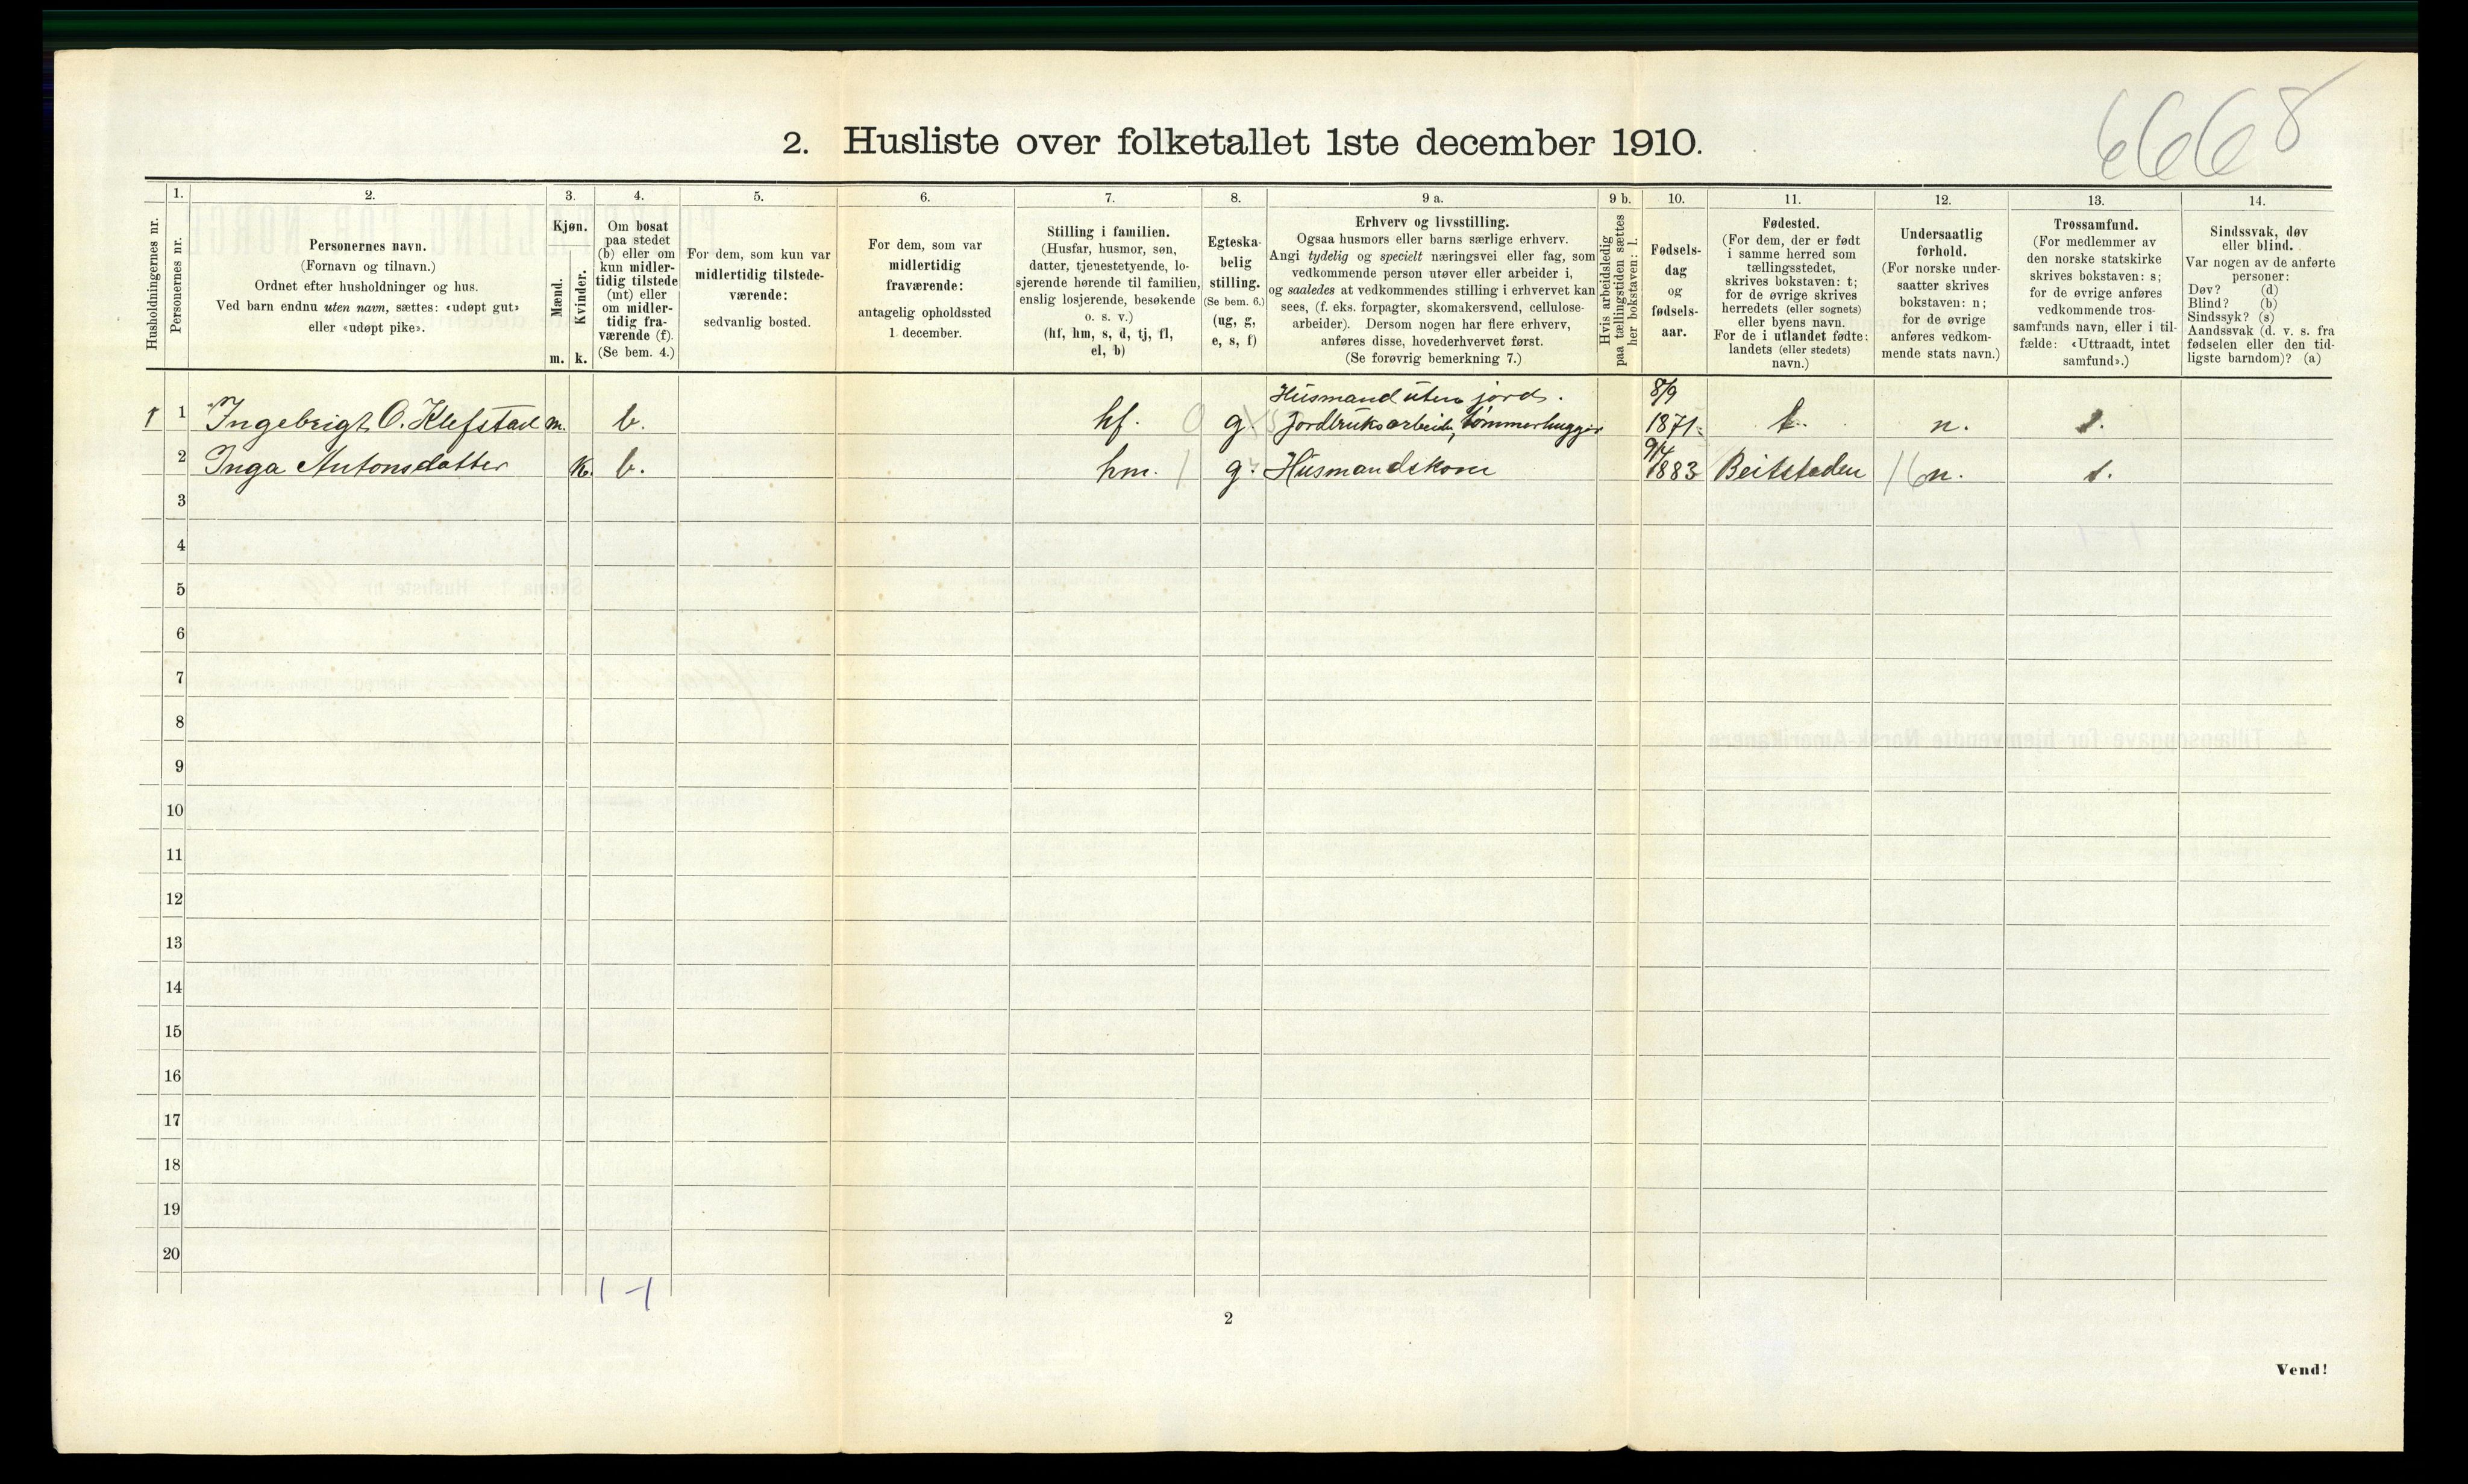 6668
2. Husliste over folketallet 1ste december 1910.
Husholdningernes nr.
1.
Personernes nr.
2.
Personernes navn.
(Fornavn og tilnavn.)
Ordnet efter husholdninger og hus.
Ved barn endnu uten navn, sættes: «udøpt gut»
eller «udøpt pike».
3.
Kjøn.
Mænd.
m.
Kvinder.
k.
4.
Om bosat
paa stedet
(b) eller om
kun midler-
tidig tilstede
(mt) eller
om midler-
tidig fra-
værende (f).
(Se bem. 4.)
5.
For dem, som kun var
midlertidig tilstede-
værende:
sedvanlig bosted.
6.
For dem, som var
midlertidig
fraværende:
antagelig opholdssted
1. december.
7.
Stilling i familien.
(Husfar, husmor, søn,
datter, tjenestetyende, lo-
sjerende hørende til familien,
enslig losjerende, besøkende
o. s. v.)
(hf, hm, s, d, tj, fl,
el, b)
8.
Egteska-
belig
stilling.
(Se bem. 6.)
(ug, g,
e, s, f)
9 a.
Erhverv og livsstilling.
Ogsaa husmors eller barns særlige erhverv.
Angi tydelig og specielt næringsvei eller fag, som
vedkommende person utøver eller arbeider i,
og saaledes at vedkommendes stilling i erhvervet kan
sees, (f. eks. forpagter, skomakersvend, cellulose-
arbeider). Dersom nogen har flere erhverv,
anføres disse, hovederhvervet først.
(Se forøvrig bemerkning 7.)
9 b.
Hvis arbeidsledig
paa tællingstiden sættes
her bokstaven: l.
10.
Fødsels-
dag
og
fødsels-
aar.
11.
Fødested.
(For dem, der er født
i samme herred som
tællingsstedet,
skrives bokstaven: t;
for de øvrige skrives
herredets (eller sognets)
eller byens navn.
For de i utlandet fødte:
landets (eller stedets)
navn.)
12.
Undersaatlig
forhold.
(For norske under-
saatter skrives
bokstaven: n;
for de øvrige
anføres vedkom-
mende stats navn.)
13.
Trossamfund.
(For medlemmer av
den norske statskirke
skrives bokstaven: s;
for de øvrige anføres
vedkommende tros-
samfunds navn, eller i til-
fælde: «Uttraadt, intet
samfund».)
14.
Sindssvak, døv
eller blind.
Var nogen av de anførte
personer:
Døv? (d)
Blind? (b)
Sindssyk? (s)
Aandssvak (d. v. s. fra
fødselen eller den tid-
ligste barndom)? (a)
Husmand uten jord. 8/9
1 1 Ingebrigt O. Klefstad m. b. hf. 0 g. Jordbruksarbeider, tømmerhugger 1871. t. n. s.
9/4
2 Inga Antonsdatter k. b. hm. 1 g. Husmandskone 1883 Beitstaden 16 n. s.
3
4
5
6
7
8
9
10
11
12
13
14
15
16
17
18
19
20
1 - 1
2
Vend!